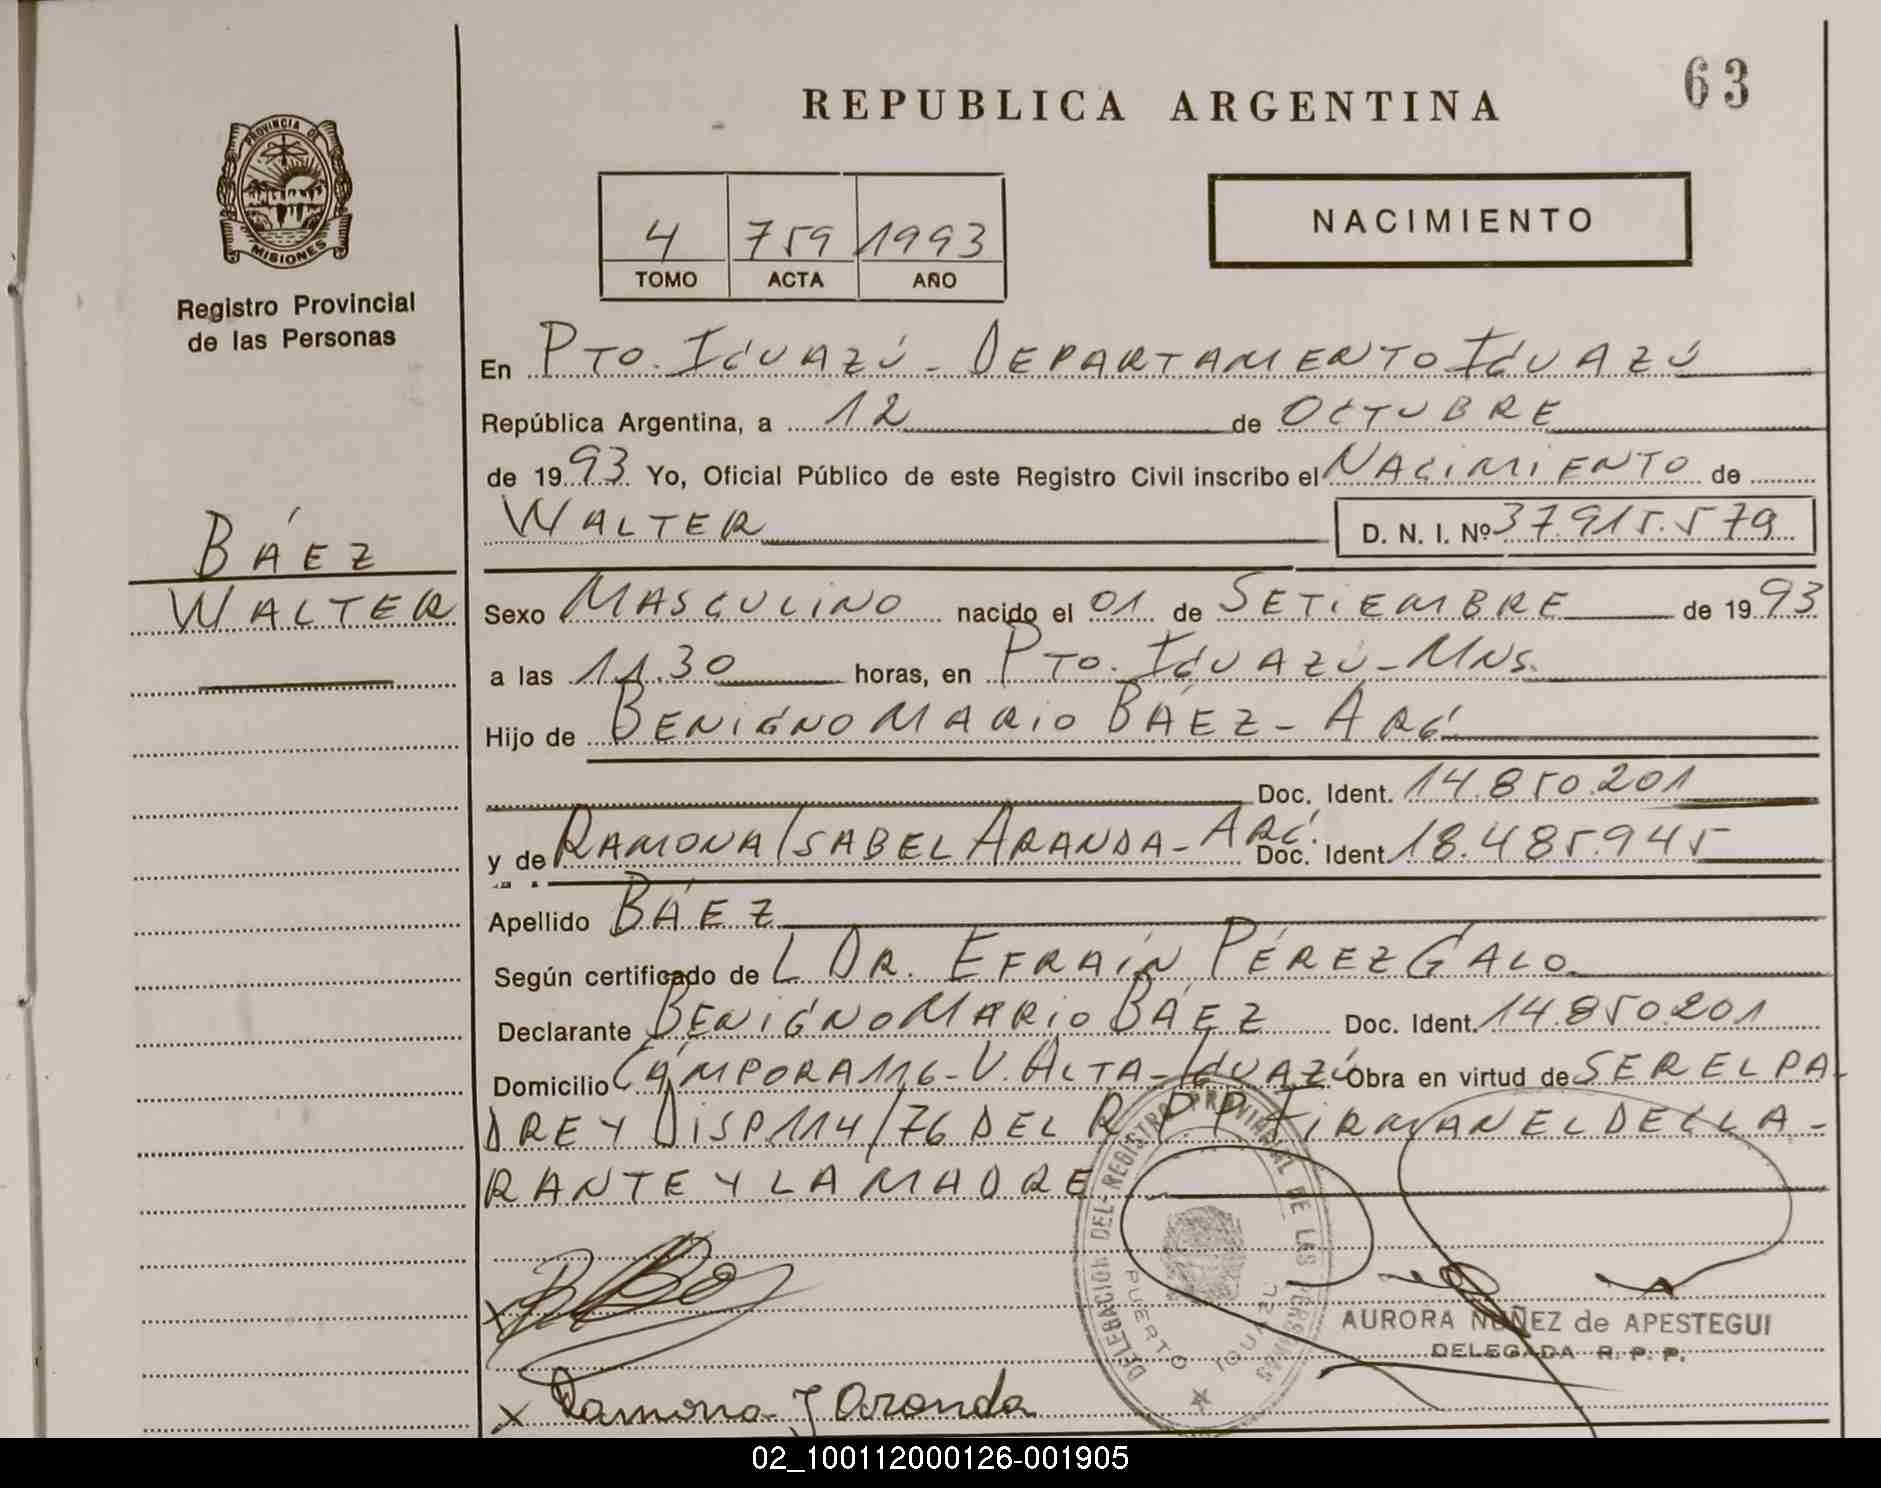 63
REPUBLICA ARGENTINA
PROVINCIA DE
MISIONES
Registro Provincial
de las Personas
4 759 1993
TOMO ACTA AÑO
NACIMIENTO
En PTO. IGUAZÚ - DEPARTAMENTO IGUAZÚ
República Argentina, a 12 de OCTUBRE
de 1993 Yo, Oficial Público de este Registro Civil inscribo el NACIMIENTO de
WALTER D. N. I. Nº 37.915.579
BÁEZ
WALTER
Sexo MASCULINO nacido el 01 de SETIEMBRE de 1993
a las 11.30 horas, en PTO. IGUAZÚ - MNS.
Hijo de BENIGNO MARIO BÁEZ - ARG.
Doc. Ident. 14.850.201
y de RAMONA ISABEL ARANDA - ARG. Doc. Ident. 18.485.945
Apellido BÁEZ
Según certificado de L DR. EFRAÍN PÉREZ GALO
Declarante BENIGNO MARIO BÁEZ Doc. Ident. 14.850.201
Domicilio CÁMPORA 116 - V. ALTA - IGUAZÚ Obra en virtud de SER EL PA-
DRE Y DISP 114/76 DEL R.P.P. FIRMAN EL DECLA-
RANTE Y LA MADRE
DELEGACION DEL REGISTRO PROVINCIAL DE LAS PERSONAS
PUERTO IGUAZU
AURORA NUÑEZ de APESTEGUI
DELEGADA R. P. P.
x
x Ramona I Aranda
02_100112000126-001905